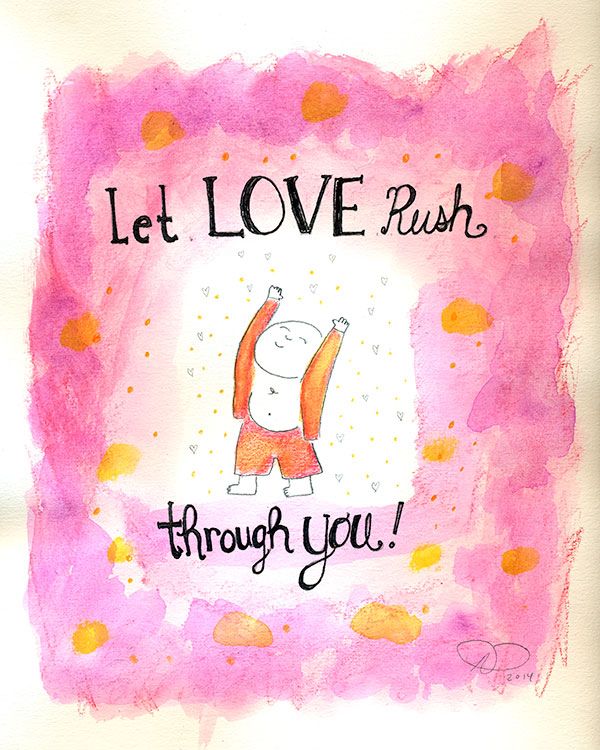 Let LOVE Rush
through you!
2014